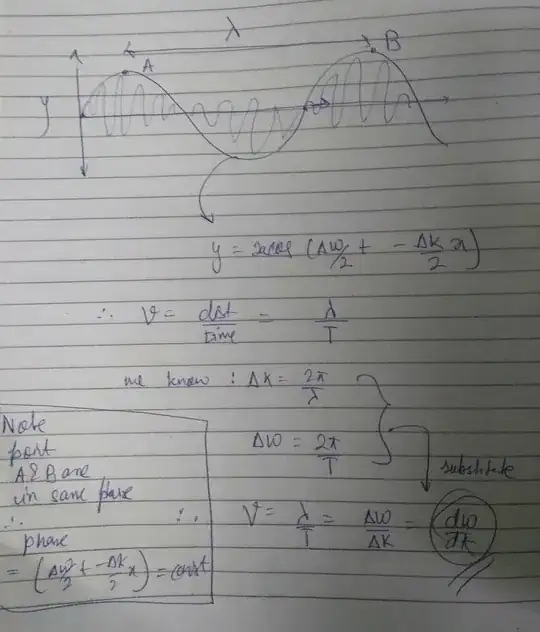 λ
A
B
y
y = 2acos (Δω/2 t - Δk/2 x)
∴ v = dist/time = λ/T
we know : Δk = 2π/λ
Δω = 2π/T
substitute
∴ v = λ/T = Δω/Δk = dω/dk
Note
A & B are
in same phase
∴
phase
= (Δω/2 t - Δk/2 x) = const